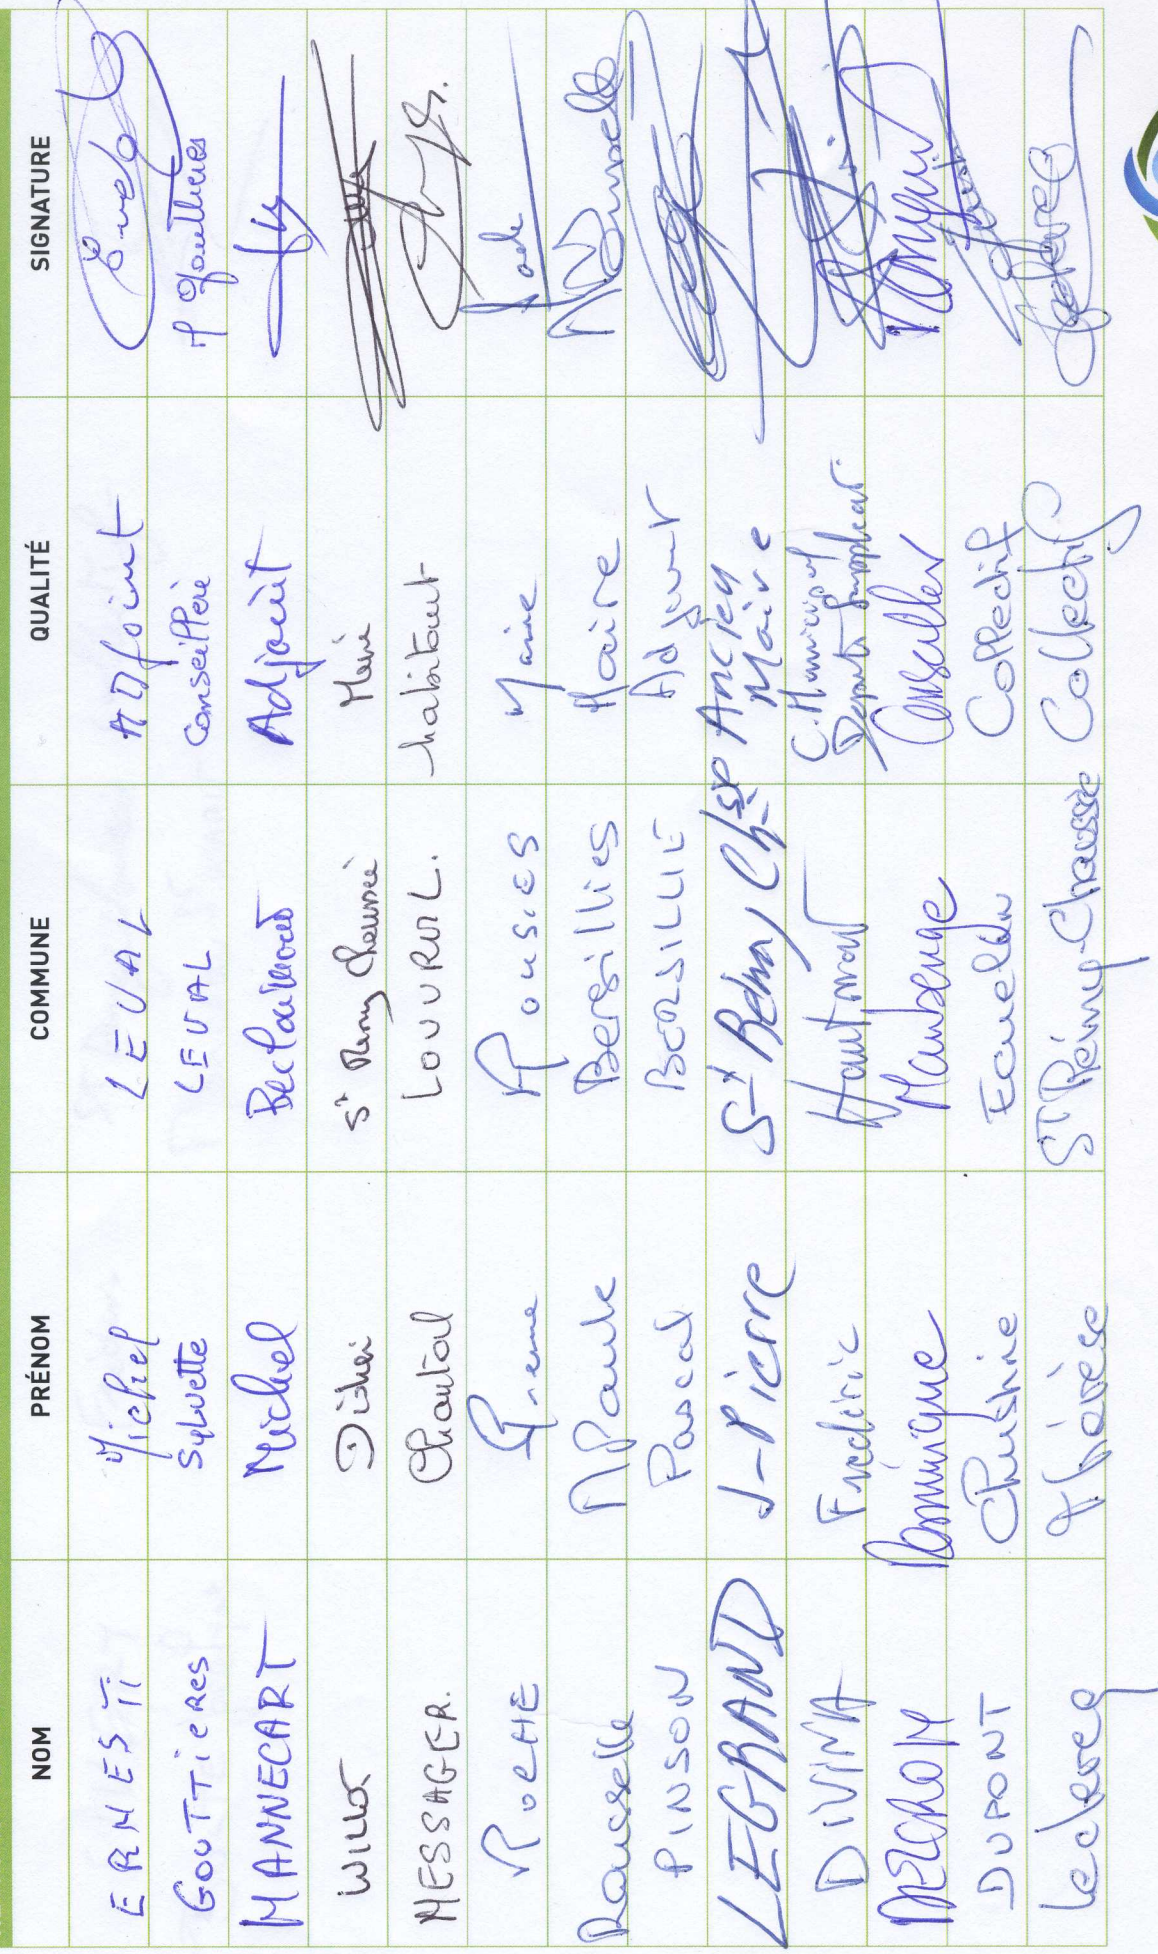 NOM PRÉNOM COMMUNE QUALITÉ SIGNATURE
ERNESTI Michel LEVAL ADjoint
GOUTTIERES Sylvette LEVAL Conseillère M Gouttieres
MANNECART Michel Berlaimont Adjoint
WILLOT Didier St Remy Chaussée
MESSAGER. Chantal LOUVROIL. habitant
ROCHE ROUSIES Maire
Rousselle MPaule Bersillies Maire
PINSON Pascal BERSILLIE Adjoint
LEGRAND J-Pierre St Remy Chsée Ancien Maire
DIVINA Frédéric Hautmont C. Municipal
Député Suppléant
Dominique Maubeuge Conseiller
DUPONT Christine Eccuelin Collectif
Leclercq Thérèse ST Rémy-Chaussée Collectif Leclercq